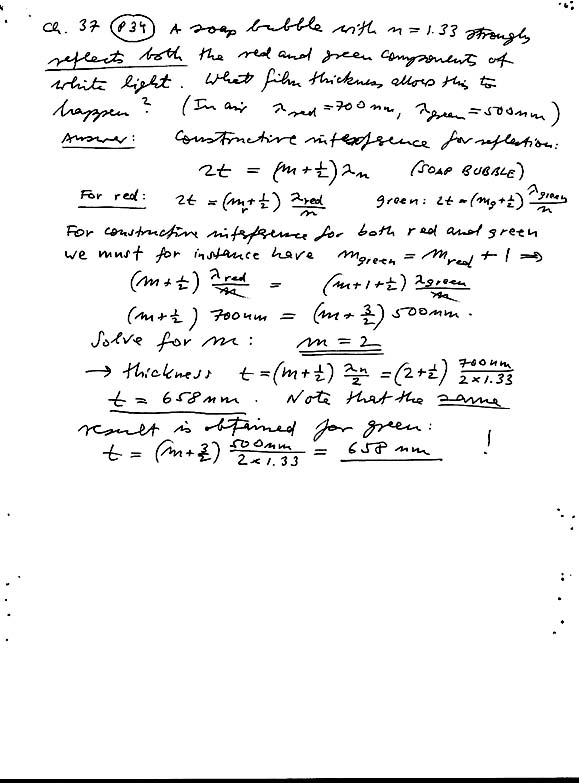 Ch. 37 P34 A soap bubble with n = 1.33 strongly
reflects both the red and green components of
white light. What film thickness allows this to
happen? (In air λred = 700 nm, λgreen = 500 nm)
Answer: Constructive interference for reflection:
2t = (m + 1/2) λn (SOAP BUBBLE)
For red: 2t = (mr + 1/2) λred/n green: 2t = (mg + 1/2) λgreen/n
For constructive interference for both red and green
we must for instance have mgreen = mred + 1 ⇒
(m + 1/2) λred/n = (m + 1 + 1/2) λgreen/n
(m + 1/2) 700nm = (m + 3/2) 500nm.
Solve for m: m = 2
→ thickness t = (m + 1/2) λn/2 = (2 + 1/2) 700nm/2×1.33
t = 658nm. Note that the same
result is obtained for green:
t = (m + 3/2) 500nm/2×1.33 = 658 nm !